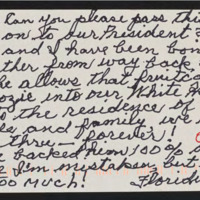 Can you please pass thi
on to our President?
and I have been bom
ther from way back
he allows that fruitca
ozie into our White H
the residence of
es and family we
thru — forever!
e backed him 100%
e I'm mistaken but
oo much!
Floridi